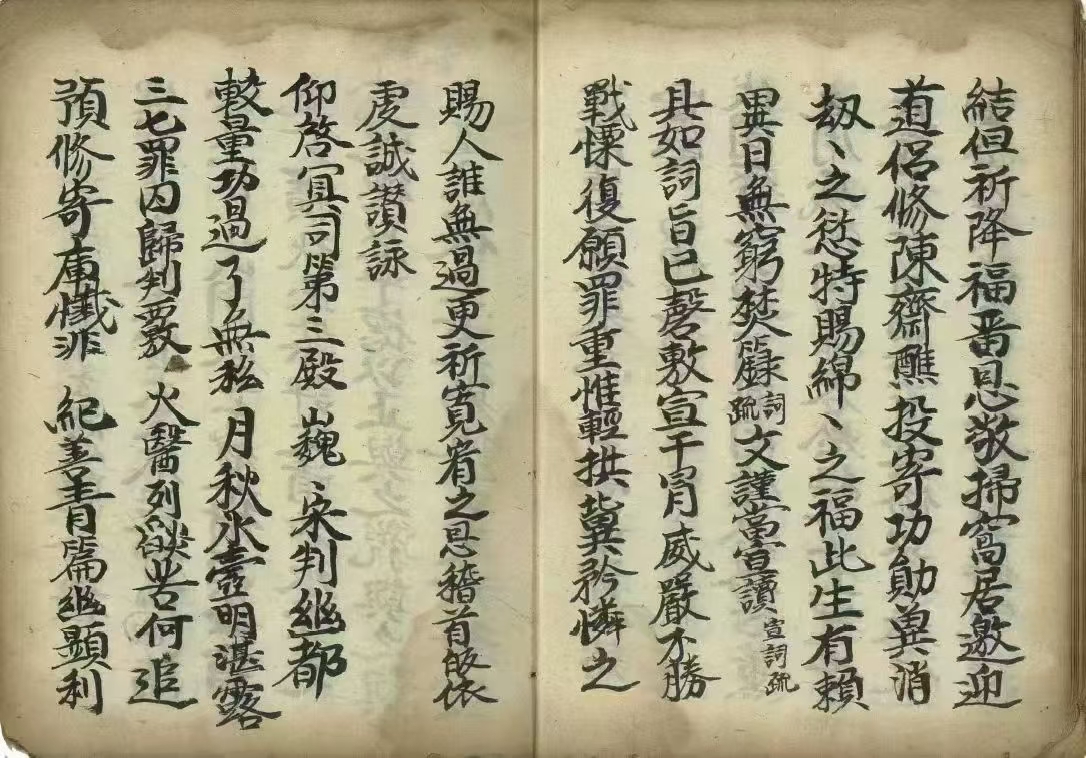 結但祈降福畨恩敬掃窩居邀迎
道侶修陳齋醮投寄功勛兾消
刼丶之愆特賜綿丶之福此生有賴
異日無窮焚籙詞疏文謹當宣讀宣詞疏
具如詞旨已罄敷宣干冒威嚴不勝
戰慄復願罪重惟輕拱冀矜憐之
賜人誰無過更祈寬宥之恩稽首皈依
虔誠讃詠
仰啓冥司第三殿 巍丶宋判繼都
較量功過了無私 月秋氷壺明湛露
三七罪囚歸判覈 火醫列燄苦何追
預修寄庫懺非 紀善青篇継顯利